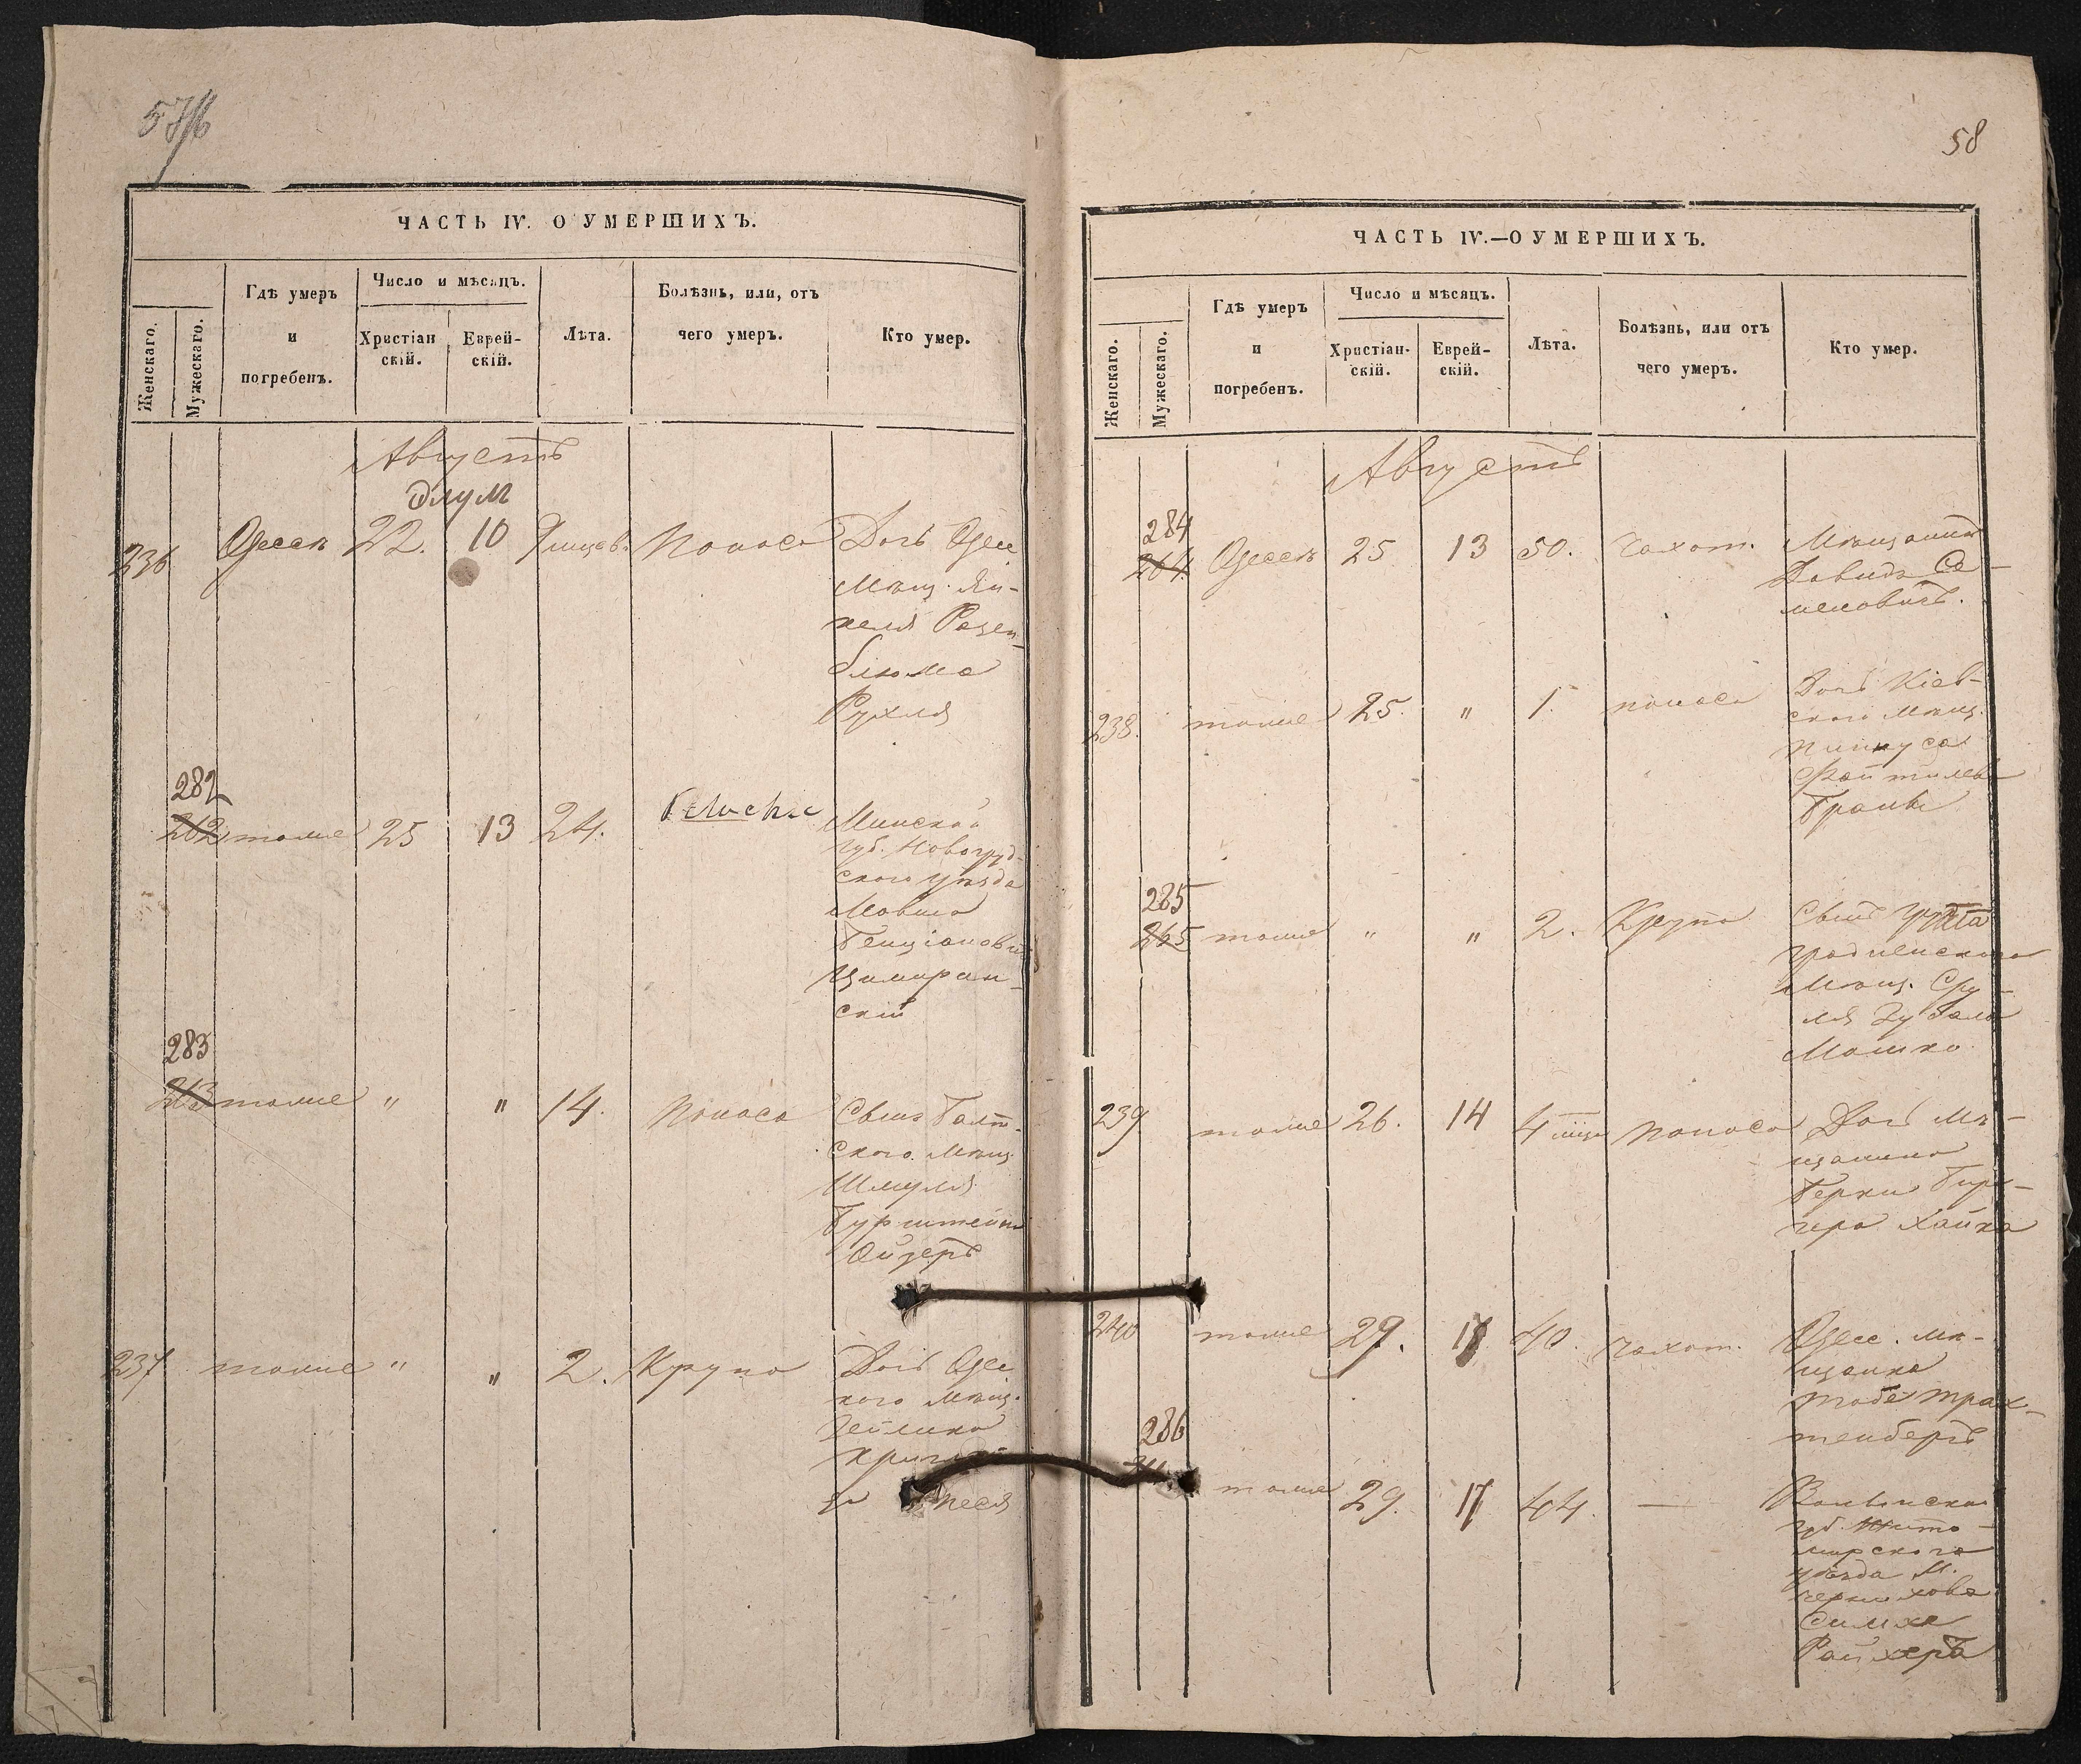 57/б
ЧАСТЬ IV. О УМЕРШИХЪ.
Женскаго.
Мужескаго.
Гдѣ умеръ
и
погребенъ.
Число и мѣсяцъ.
Христіан
скій.
Еврей-
скій.
Лѣта.
Болѣзнь, или, отъ
чего умеръ.
Кто умер.
Августъ
Элул
236 Одесѣ 22. 10 9 мѣсев. Поноса Дочь Одес
Мѣщ. Ян-
келя Розен-
блюма
Рухля
282
262 тоже 25 13 24. Минской
губ. Новогруд-
ского уѣзда
Мовша
Бенціонов
Цимиран-
скій
283
263 тоже " " 14. Поноса Сынъ Балт-
ского Мѣщ.
Шмуля
Бурштейна
Ойзеръ
237 тоже " " 2. Крупа Дочь Одес
кого Мѣщ.
Зейлика
Песя
58
ЧАСТЬ IV.—О УМЕРШИХЪ.
Женскаго.
Мужескаго.
Гдѣ умеръ
и
погребенъ.
Число и мѣсяцъ.
Христіан-
скій.
Еврей-
скій.
Лѣта.
Болѣзнь, или отъ
чего умеръ.
Кто умер.
Августъ
284
264 Одессѣ 25 13 50. Чахот. Мѣщанинъ
Давидъ Се-
меновичъ.
238. тоже 25. " 1. поноса Дочь Кіев-
ского Мѣщ.
Пинкуса
Файтилева
Бранѣ
285
265 тоже " " 2. Крупа Сынъ
гродненского
Мѣщ. Сру-
ля Зубаль
Мошко
239 тоже 26. 14 4 мѣц Поноса Дочь Мѣ-
щанина
Берки Бир-
гера Хайка
240 тоже 29. 17 40. Чахот. Одес. мѣ-
щанка
Тобе Трах-
тенбергъ
286
тоже 29. 17 44. — Волынской
губ. Жито-
мирского
уѣзда М.
Чернихова
Симха
Райхеръ